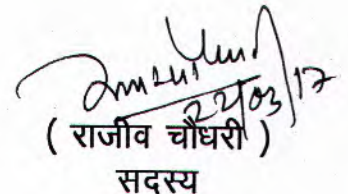 22/03/17
( राजीव चौधरी )
सदस्य